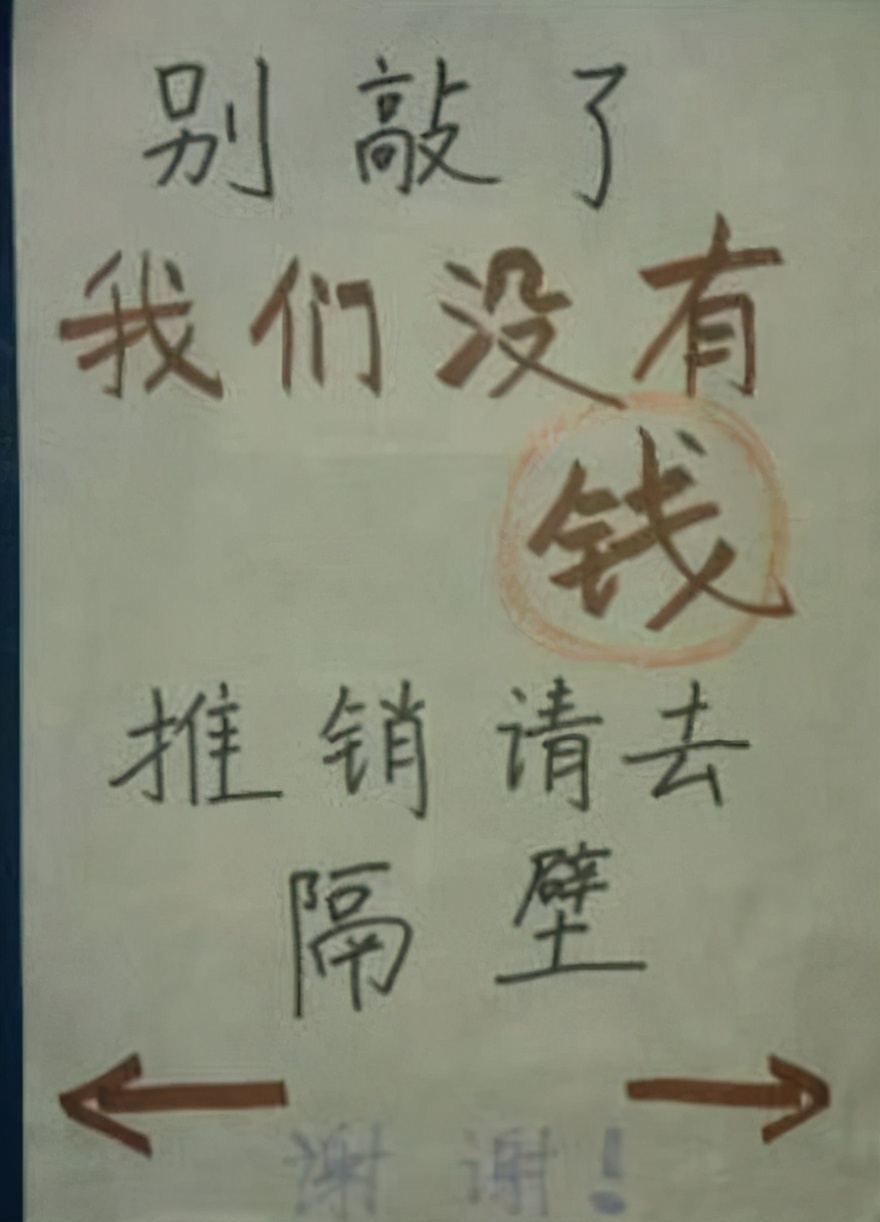 别敲了
我们没有
钱
推销请去
隔壁
← →
谢谢！